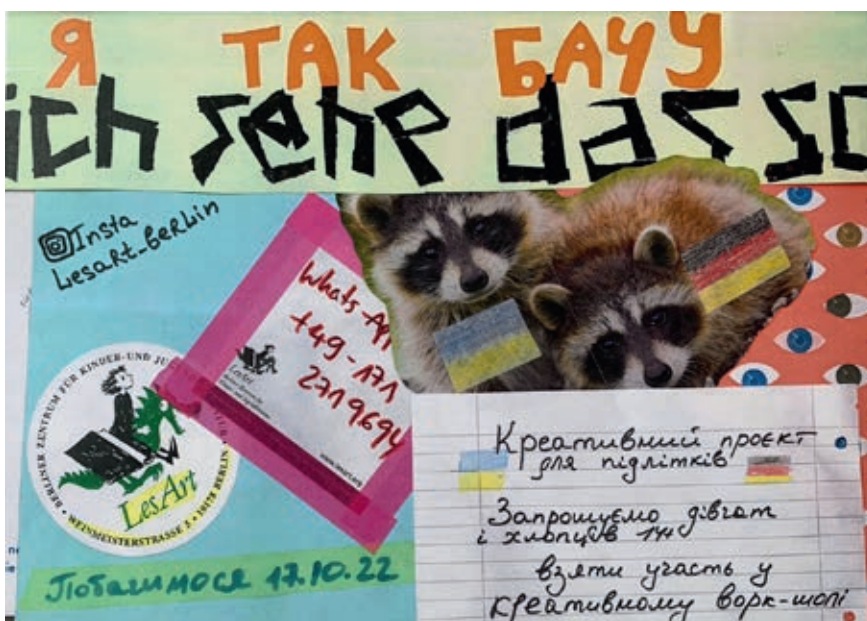 Я ТАК БАЧУ
ich sehe das so
Insta
LesArt_BeRLin
Whats-App
+49-171
2719694
LesArt
www.lesart.org
BERLINER ZENTRUM FÜR KINDER-UND
WEINMEISTERSTRASSE 5 • 10178 BERLIN
LesArt
Побачимося 17.10.22
Креативний проєкт
для підлітків
Запрошуємо дівчат
і хлопців 14+
взяти участь у
креативному ворк-шопі